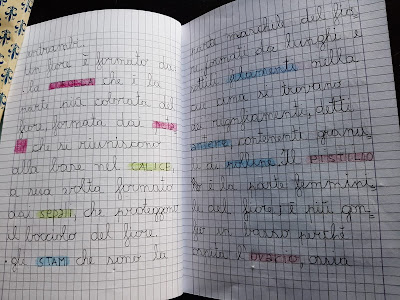 entrambi.
Un fiore è formato da
lla COROLLA che è la
parte più colorata del
fiore formata dai PETA
LI che si riuniscono
alla base nel CALICE,
a sua volta formato
dai SEPALI, che proteggono
il bocciolo del fiore.
gli STAMI che sono la
parte maschile del fio=
formati da lunghi e
sottili nella
cui cima si trovano
dei rigonfiamenti, detti
ANTERE, contenenti granel=
li di POLLINE. Il PISTILLO
è la parte femmini=
le del fiore; è più gon=
fio in basso perché
OVARIO, ossia